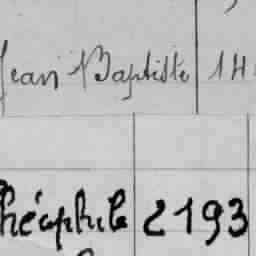 Jean Baptiste 14
Théophile 2193